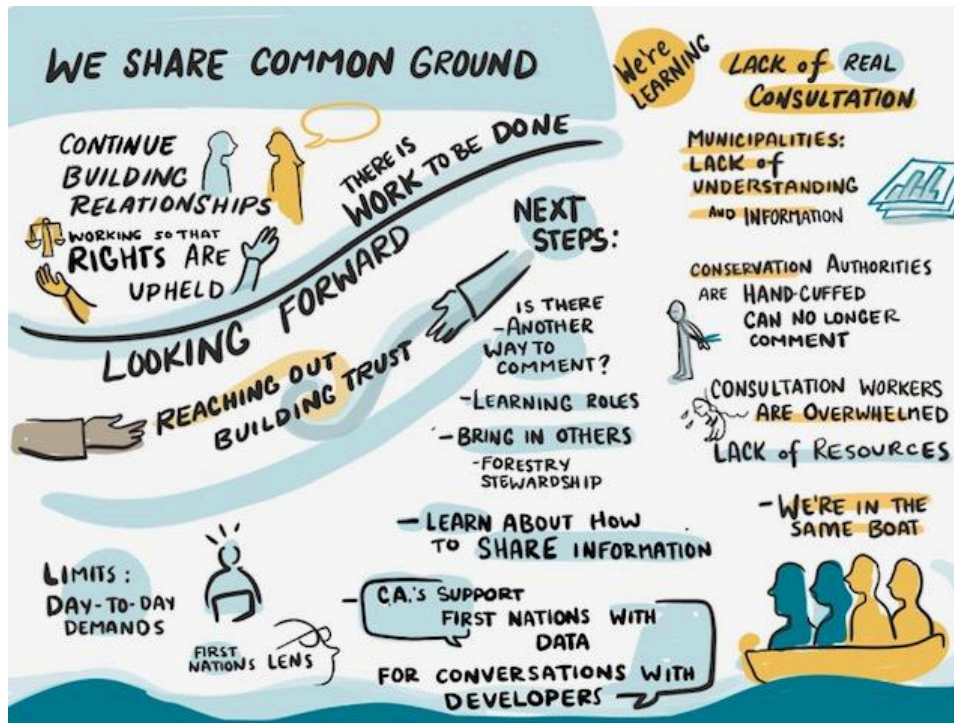 WE SHARE COMMON GROUND
CONTINUE
BUILDING
RELATIONSHIPS
WORKING SO THAT
RIGHTS ARE
UPHELD
THERE IS
WORK TO BE DONE
LOOKING FORWARD
REACHING OUT
BUILDING TRUST
NEXT
STEPS:
IS THERE
- ANOTHER
WAY TO
COMMENT?
- LEARNING ROLES
- BRING IN OTHERS
- FORESTRY
STEWARDSHIP
- LEARN ABOUT HOW
TO SHARE INFORMATION
- C.A.'S SUPPORT
FIRST NATIONS WITH
DATA
FOR CONVERSATIONS WITH
DEVELOPERS
LIMITS:
DAY-TO-DAY
DEMANDS
FIRST
NATIONS LENS
We're
LEARNING
LACK of REAL
CONSULTATION
MUNICIPALITIES:
LACK of
UNDERSTANDING
AND INFORMATION
CONSERVATION AUTHORITIES
ARE HAND-CUFFED
CAN NO LONGER
COMMENT
CONSULTATION WORKERS
ARE OVERWHELMED
LACK of RESOURCES
- WE'RE IN THE
SAME BOAT